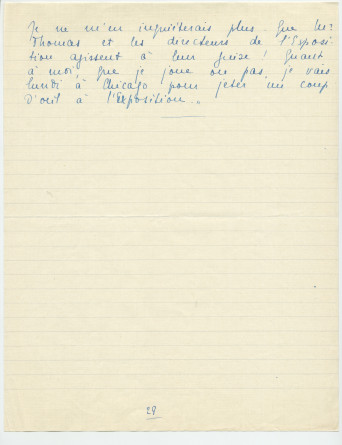 Je ne m'en inquiéterais plus. Que Mr
Thomas et les directeurs de l'Exposi-
tion agissent à leur guise! Quant
à moi, que je joue ou pas, je vais
lundi à Chicago pour jeter un coup
d'œil à l'Exposition."
29